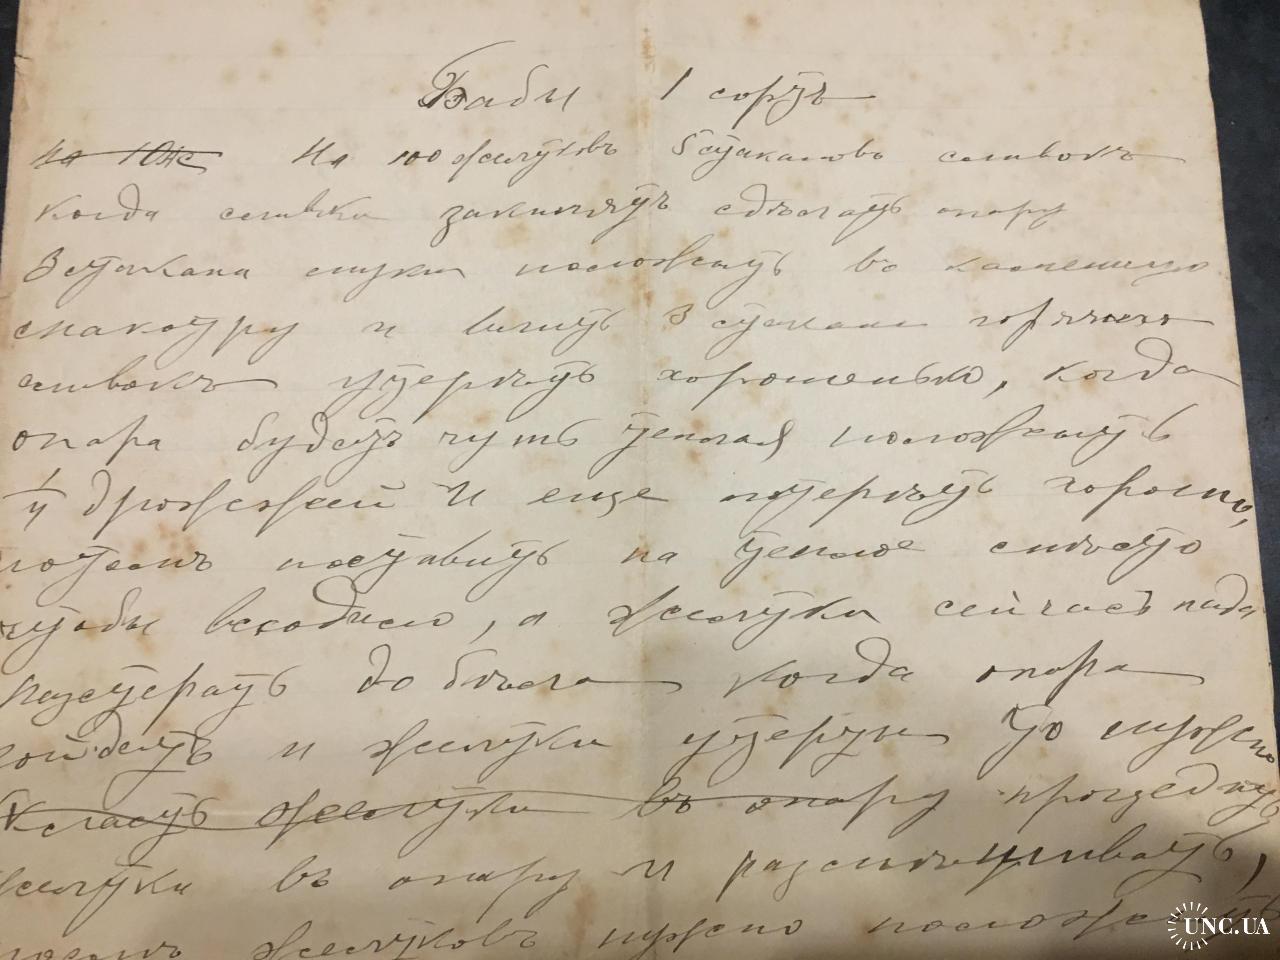 Бабы 1 сортъ
На 10ж На 100 желтковъ 5 стакановъ сливокъ
когда сливки закипятъ сдѣлать опару
3 стакана муки положить въ каменную
макотру и влить 3 стакана горячихъ
сливокъ утереть хорошенько, когда
опара будетъ чуть теплая положить
дрожжей и еще утереть хорошо,
потомъ поставить на теплое мѣсто
чтобы всходило, а желтки сейчасъ надо
растерать до бѣла когда опара
пойдетъ и желтки утерты то нужно
класть желтки въ опару процедить
желтки въ опару и размѣшивать,
желтковъ нужно положить
UNC.UA